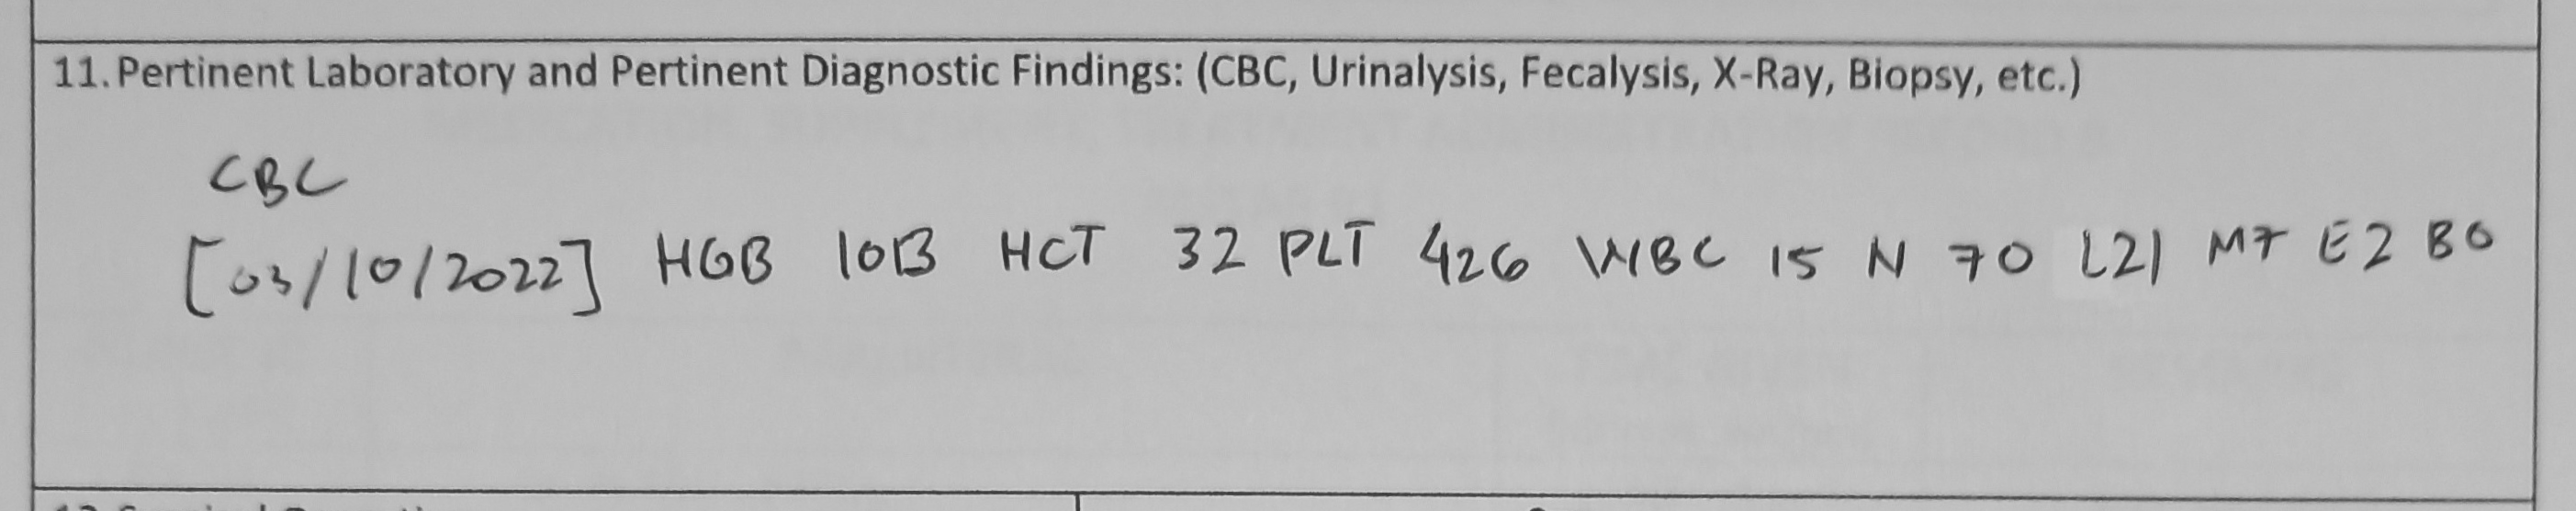 11. Pertinent Laboratory and Pertinent Diagnostic Findings: (CBC, Urinalysis, Fecalysis, X-Ray, Biopsy, etc.)
CBC
[03/10/2022] HGB 103 HCT 32 PLT 426 WBC 15 N 70 L21 M7 E2 B0